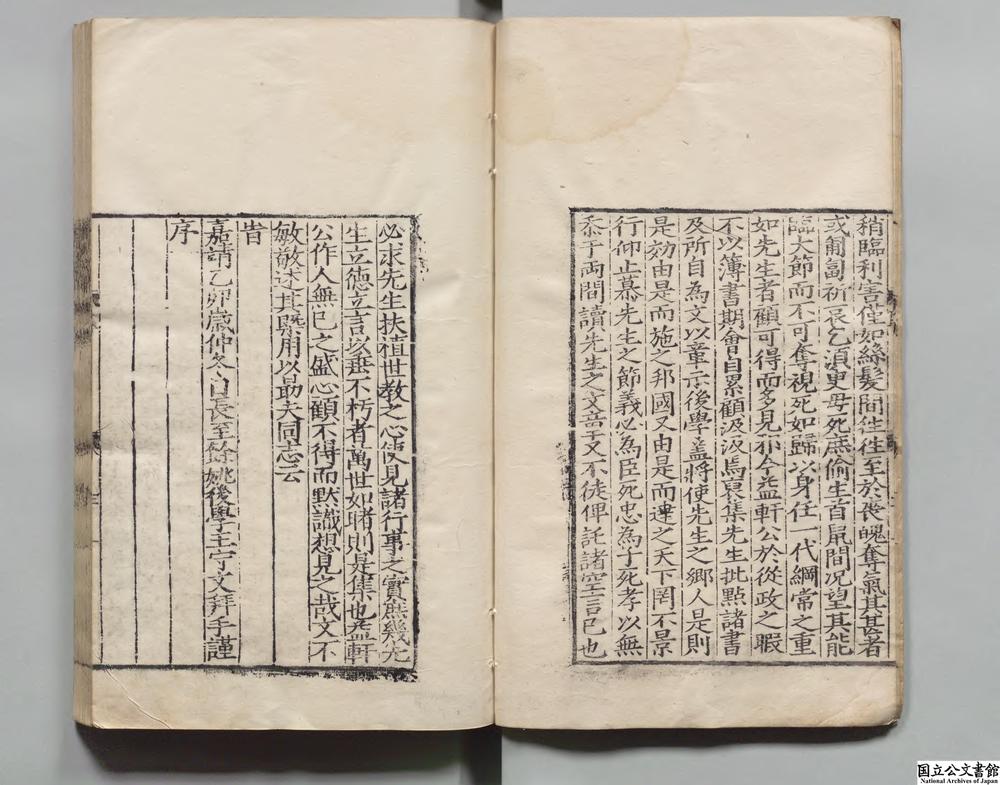 稍臨利害僅如絲髮間往往至於喪魄奪氣其甚者
或匍匐祈哀乞須臾毋死庶偷生首鼠間况望其能
臨大節而不可奪視死如歸以身任一代綱常之重
如先生者顧可得而多見耶今益軒公於從政之暇
不以簿書期會自累顧汲汲焉裒集先生批點諸書
及所自為文以章示後學盖將使先生之鄉人是則
是効由是而施之邦國又由是而達之天下罔不景
行仰止慕先生之節義必為臣死忠為子死孝以無
忝于两間讀先生之文章又不徒俾託諸空言已也
必求先生扶植世教之心使見諸行事之實庶幾先
生立德立言以垂不朽者萬世如睹則是集也益軒
公作人無已之盛心顧不得而默識想見之哉文不
敏敬述其槩用以勗夫同志云
旹
嘉靖乙卯歲仲冬日長至餘姚後學王守文拜手謹
序
国立公文書館
National Archives of Japan